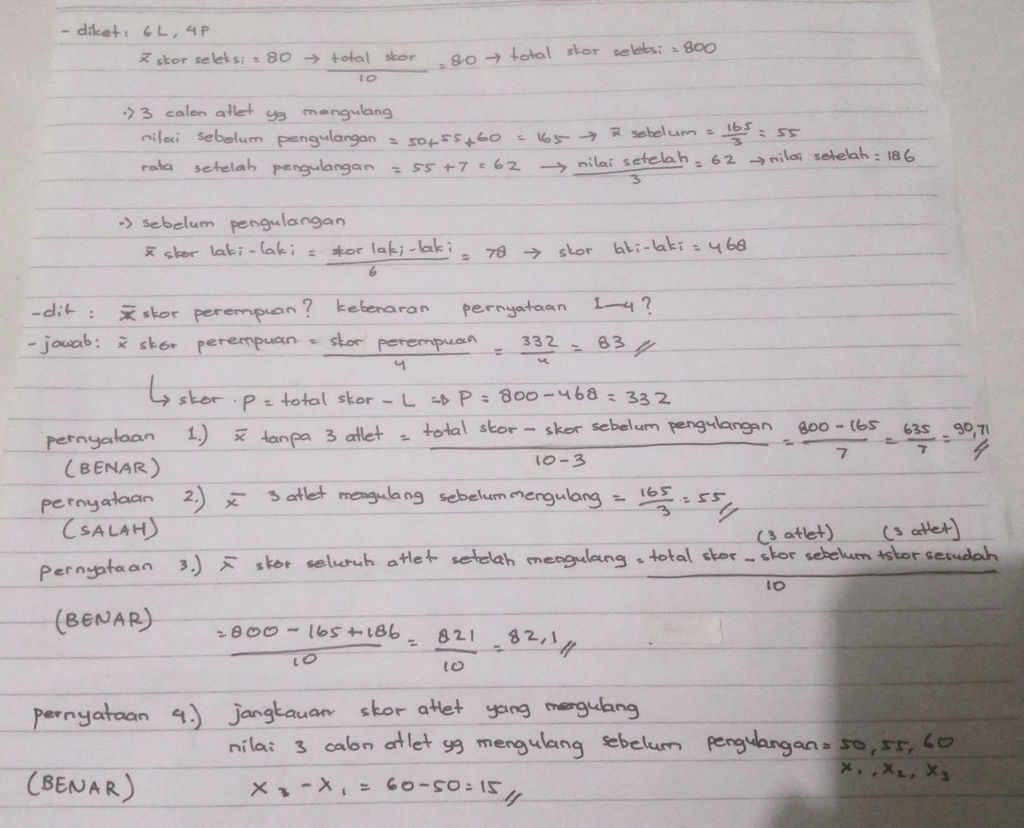 - diket: 6L, 4P
x̄ skor seleksi = 80 → total skor / 10 = 80 → total skor seleksi = 800
•) 3 calon atlet yg mengulang
nilai sebelum pengulangan = 50+55+60 = 165 → x̄ sebelum = 165/3 = 55
rata setelah pengulangan = 55 + 7 = 62 → nilai setelah / 3 = 62 → nilai setelah = 186
•) sebelum pengulangan
x̄ skor laki-laki = skor laki-laki / 6 = 78 → skor laki-laki = 468
- dit : x̄ skor perempuan? kebenaran pernyataan 1-4?
- jawab: x̄ skor perempuan = skor perempuan / 4 = 332/4 = 83 //
↳ skor P = total skor - L ⇒ P = 800 - 468 = 332
pernyataan 1.) x̄ tanpa 3 atlet = total skor - skor sebelum pengulangan / 10-3 = 800-165 / 7 = 635/7 = 90,71 //
(BENAR)
pernyataan 2.) x̄ 3 atlet mengulang sebelum mengulang = 165/3 = 55 //
(SALAH)
(3 atlet) (3 atlet)
pernyataan 3.) x̄ skor seluruh atlet setelah mengulang = total skor - skor sebelum + skor sesudah / 10
(BENAR)
= 800 - 165 + 186 / 10 = 821/10 = 82,1 //
pernyataan 4.) jangkauan skor atlet yang mengulang
nilai 3 calon atlet yg mengulang sebelum pengulangan = 50, 55, 60
x₁, x₂, x₃
(BENAR) x₃ - x₁ = 60 - 50 = 15 //